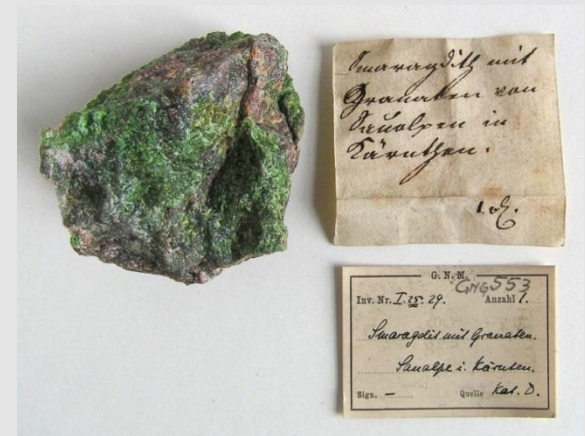 Smaragdith mit
Granaten von
Saualpen in
Kärnthen.
G. N. M.
GNG 553
Inv. Nr. I.25.29. Anzahl 1.
Smaragdit mit Granaten.
Saualpe i. Kärnten.
Sign. — Quelle Kat. D.